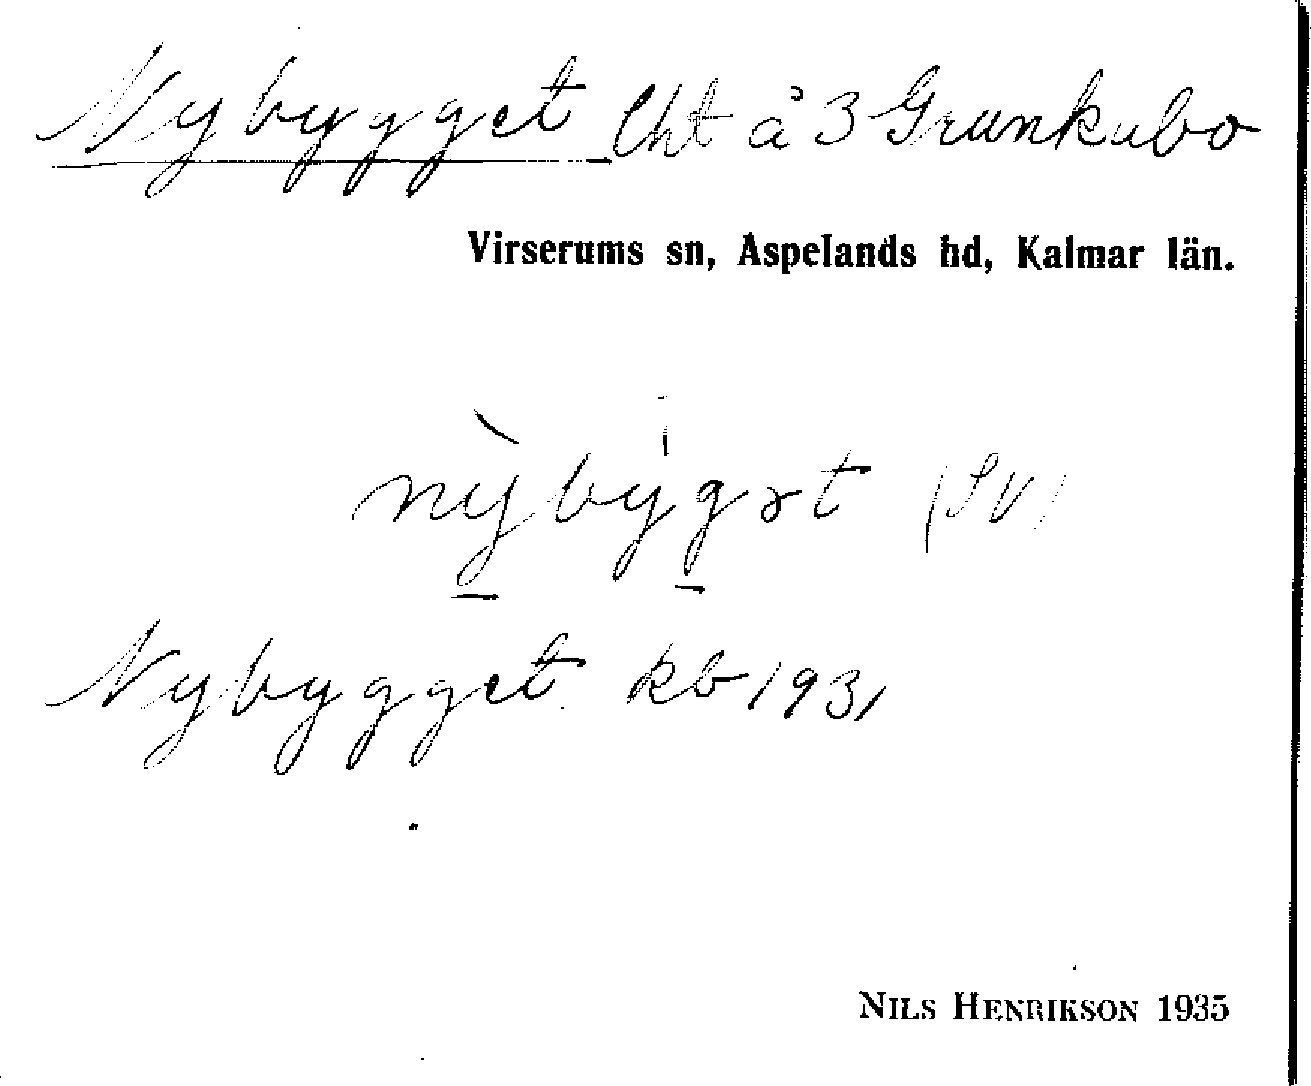 Nybygget lht å 3 Grunkubo
Virserums sn, Aspelands hd, Kalmar län.
nỳbýgət (SV)
Nybygget kb 1931
NILS HENRIKSON 1935